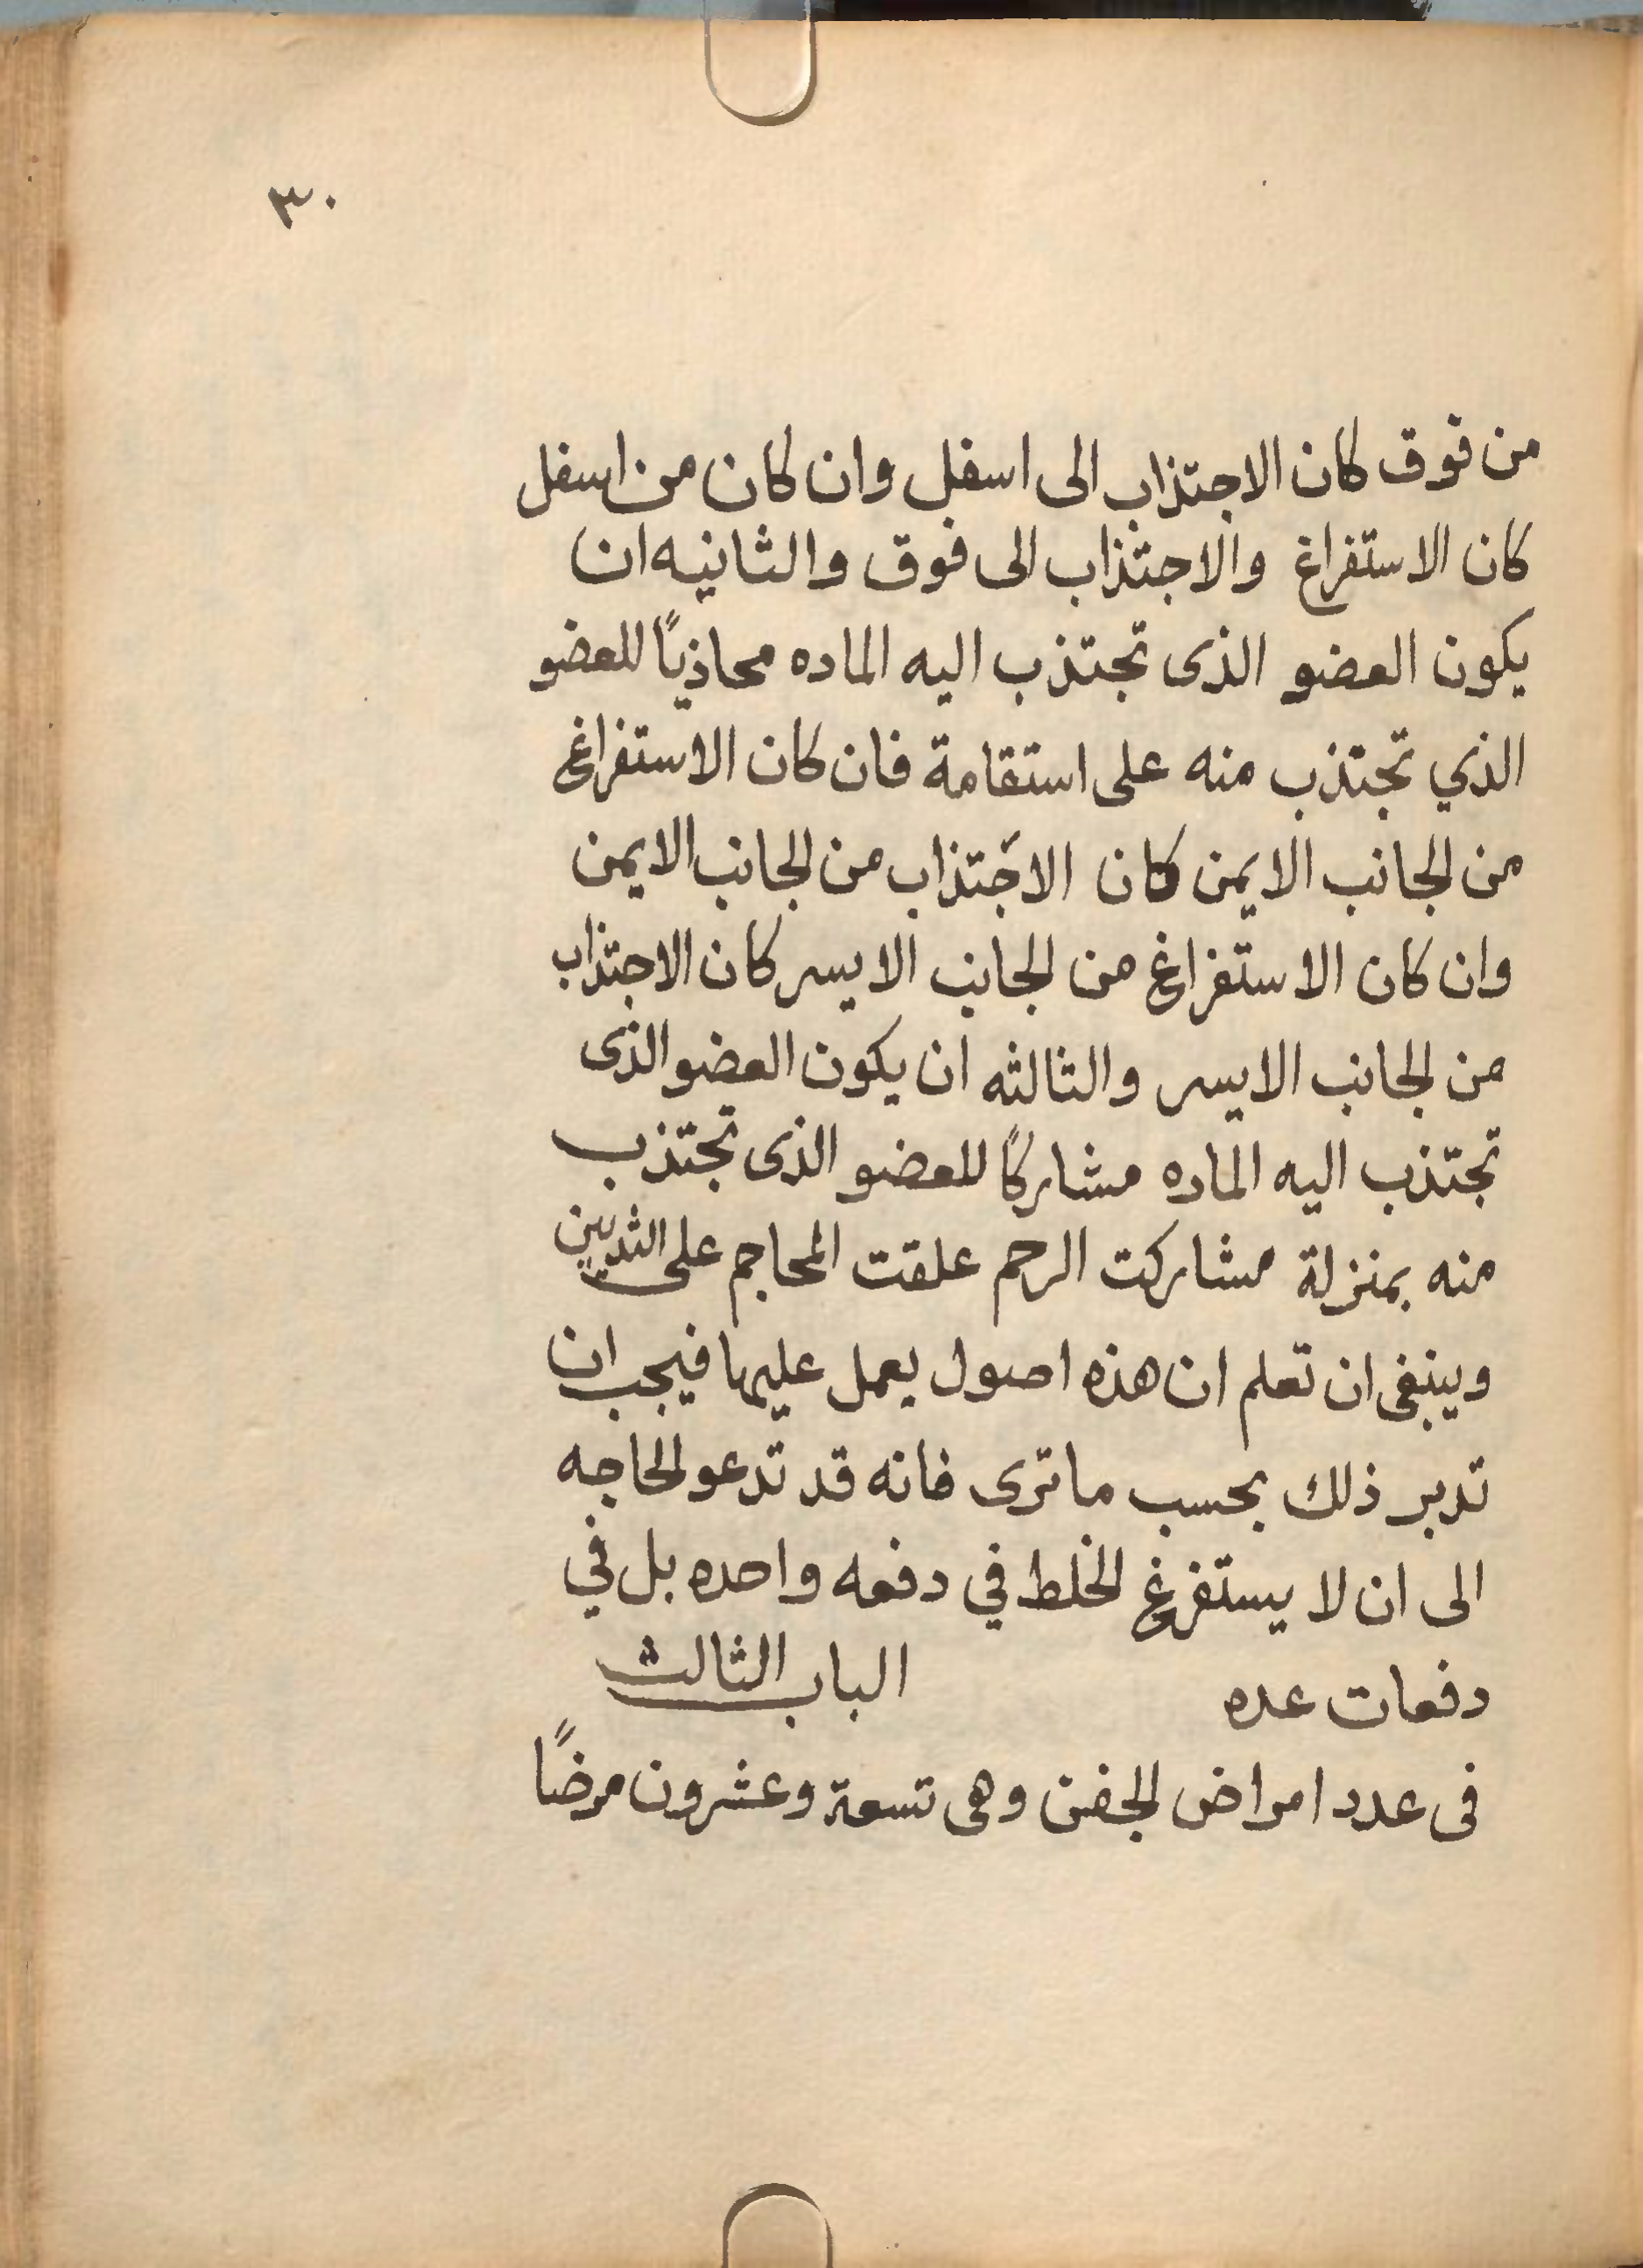 ٣٠
من فوق كان الاجتذاب الى اسفل وان كان من اسفل
كان الاستفراغ والاجتذاب الى فوق والثانيه ان
يكون العضو الذى تجتذب اليه الماده محاذيًا للعضو
الذي تجتذب منه على استقامة فان كان الاستفراغ
من الجانب الايمن كان الاجتذاب من الجانب الايمن
وان كان الاستفراغ من الجانب الايسر كان الاجتذاب
من الجانب الايسر والثالثه ان يكون العضو الذى
تجتذب اليه الماده مشاركًا للعضو الذى تجتذب
منه بمنزلة مشاركت الرحم علقت المحاجم على الثديين
وينبغى ان تعلم ان هذه اصول يعمل عليها فيجب ان
تدبر ذلك بحسب ما ترى فانه قد تدعو الحاجه
الى ان لا يستفرغ الخلط في دفعه واحده بل في
دفعات عده الباب الثالث
فى عدد امراض الجفن وهى تسعة وعشرون مرضًا